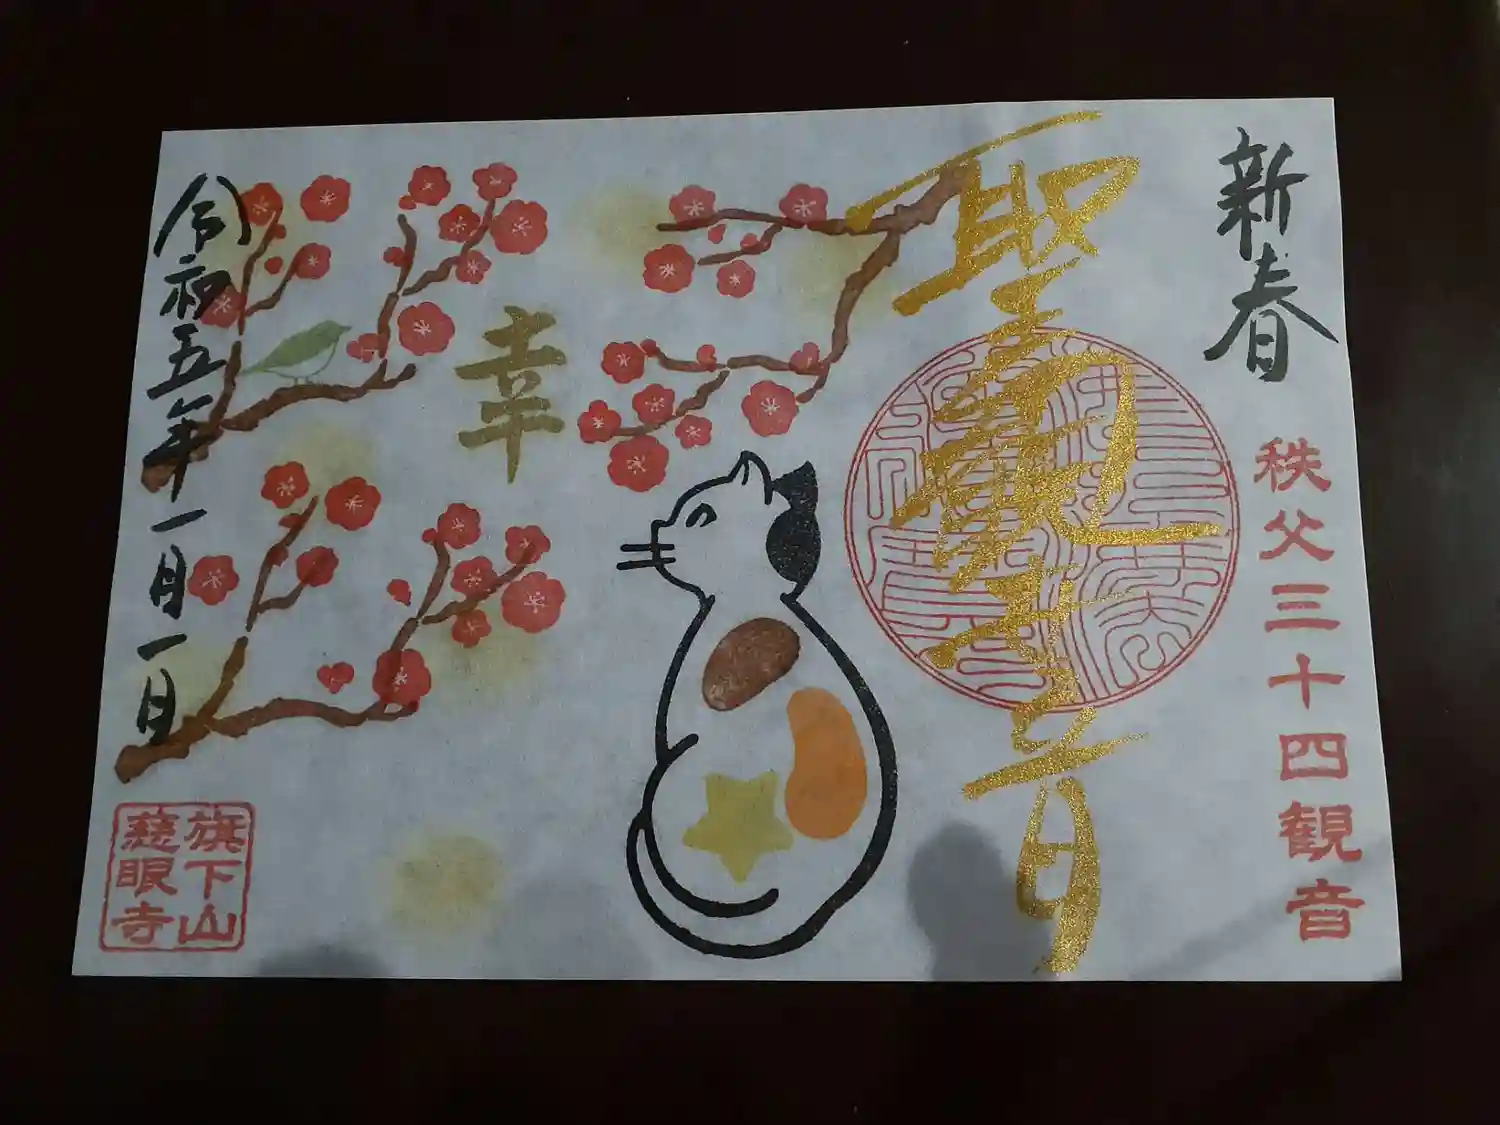 新春
秩父三十四観音
聖観世音
幸
令和五年一月一日
旗下山
慈眼寺